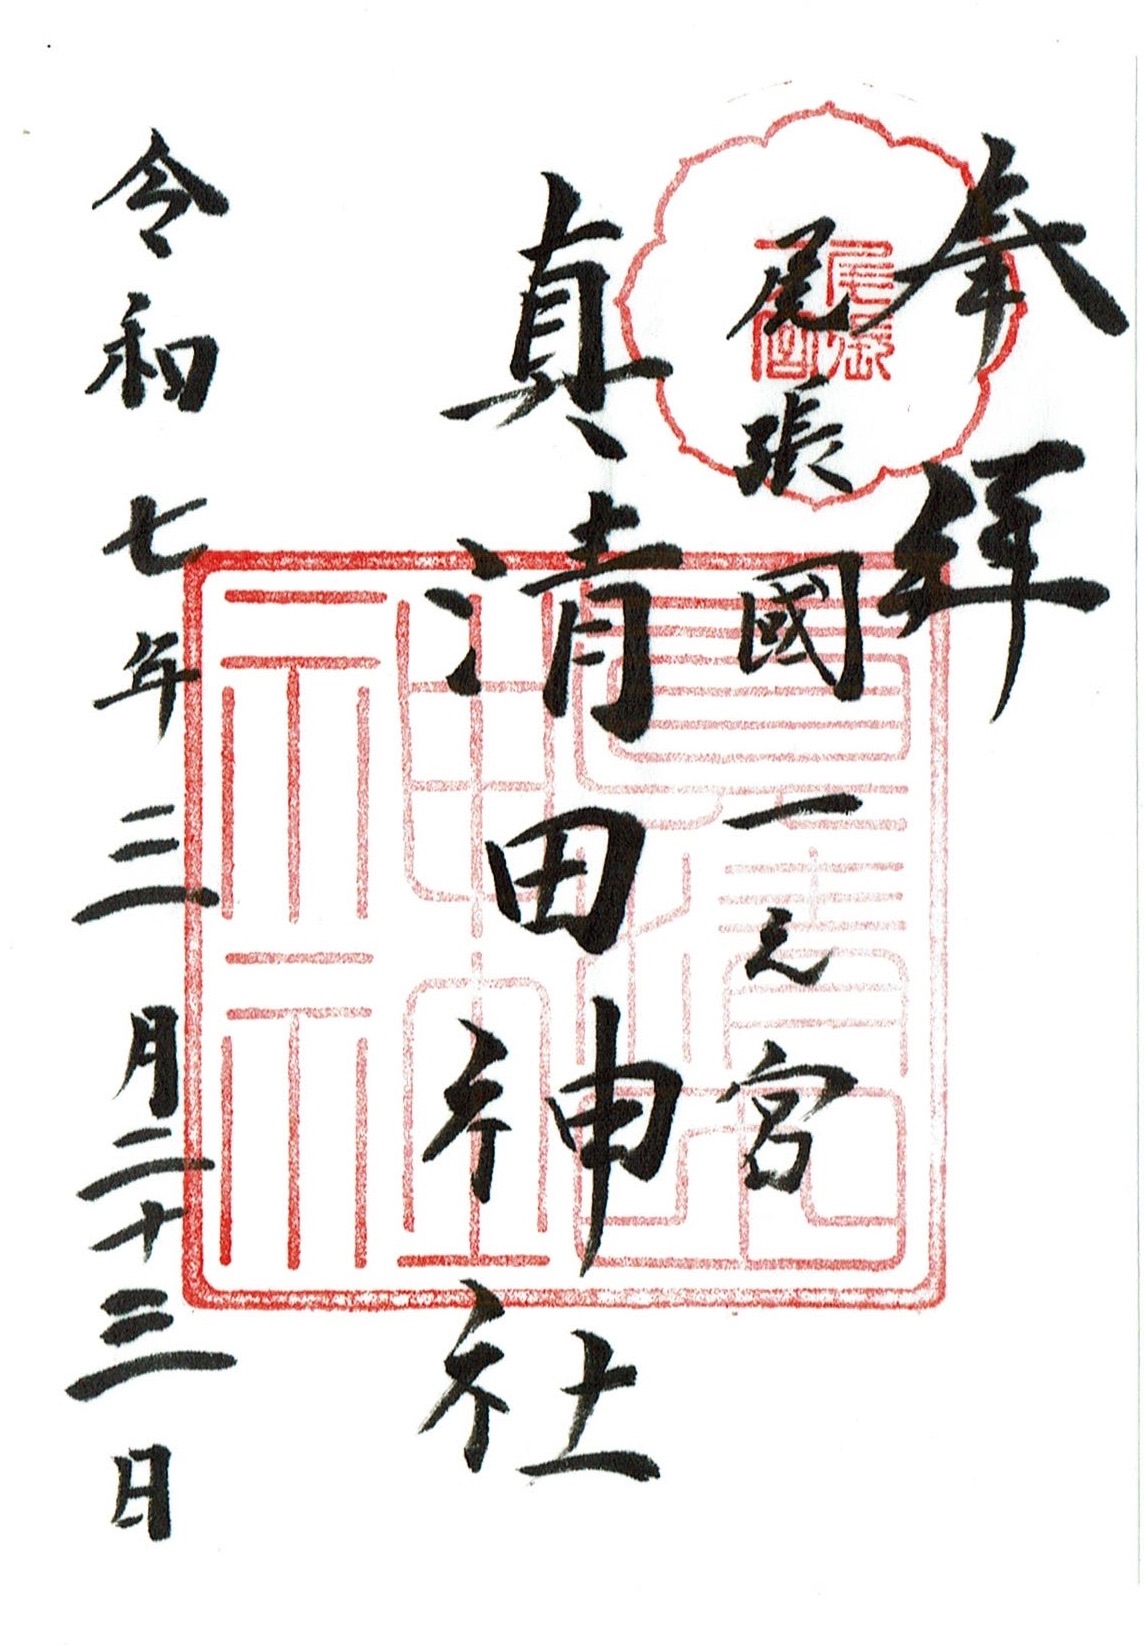 奉拝
尾張國一之宮
真清田神社
令和七年三月二十三日
尾張一宮
真清田神社